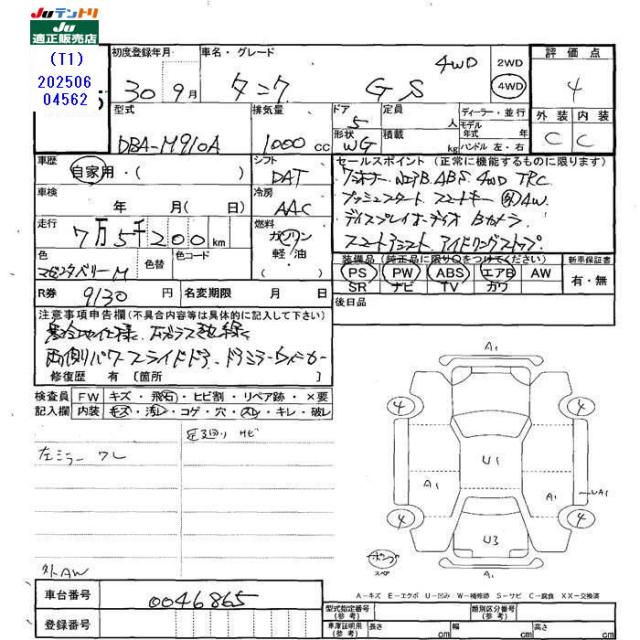 Juテントリ
Ju
適正販売店
(T1)
202506
04562
初度登録年月
30 9月
車名・グレード
タンク GS 4WD
2WD
4WD
評価点
4
外装 内装
C C
型式
DBA-M910A
排気量
1000 cc
ドア
5
形状
WG
定員
人
積載
kg
ディーラー・並行
モデル
年式 年
ハンドル 左・右
車歴
自家用・( )
シフト
DAT
車検
年 月( 日)
冷房
AAC
走行
7万5千200km
燃料
ガソリン
軽油
( )
色
マゼンタベリーM
色替
色コード
R券
9130円
名変期限 月 日
セールスポイント(正常に機能するものに限ります)
ABS 4WD TRC
プッシュスタート スマートキー 4W
ディスプレイオーディオ Bカメラ
スマートアシスト アイドリングストップ
装備品(純正品に限り○をつけてください)
PS PW ABS エアB AW
SR ナビ TV カワ
新車保証書
有・無
後日品
注意事項申告欄(不具合内容等は具体的に記入して下さい)
寒冷地仕様
両側パワースライドドア ドアミラーウィンカー
修復歴 有 [箇所 ]
検査員
記入欄
FW キズ・飛石・ヒビ割・リペア跡・×要
内装 キズ・汚レ・コゲ・穴・スレ・キレ・破レ
足廻り サビ
左ミラー ワレ
外AW
A1
4
4
U1
A1
A1
UA1
4
4
U3
スペア
A1
A-キズ E-エクボ U-凹み W-補修跡 S-サビ C-腐食 XX-交換済
車台番号
0046865
登録番号
型式指定番号
(参考)
類別区分番号
(参考)
車庫証明用
(参考)
長さ
cm
幅
cm
高さ
cm